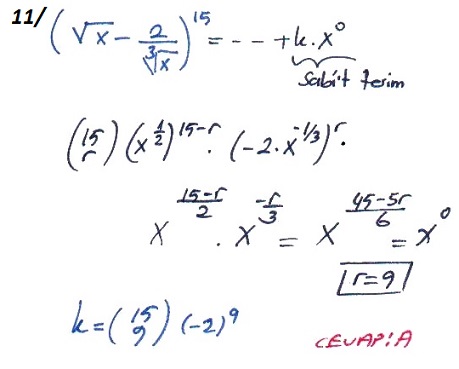 11/ (√x - 2/∛x)^15 = - - + k.x^0
Sabit terim
(15 r) (x^(1/2))^(15-r) . (-2.x^(-1/3))^r .
x^((15-r)/2) . x^(-r/3) = x^((45-5r)/6) = x^0
r=9
k = (15 9) (-2)^9
CEVAP:A